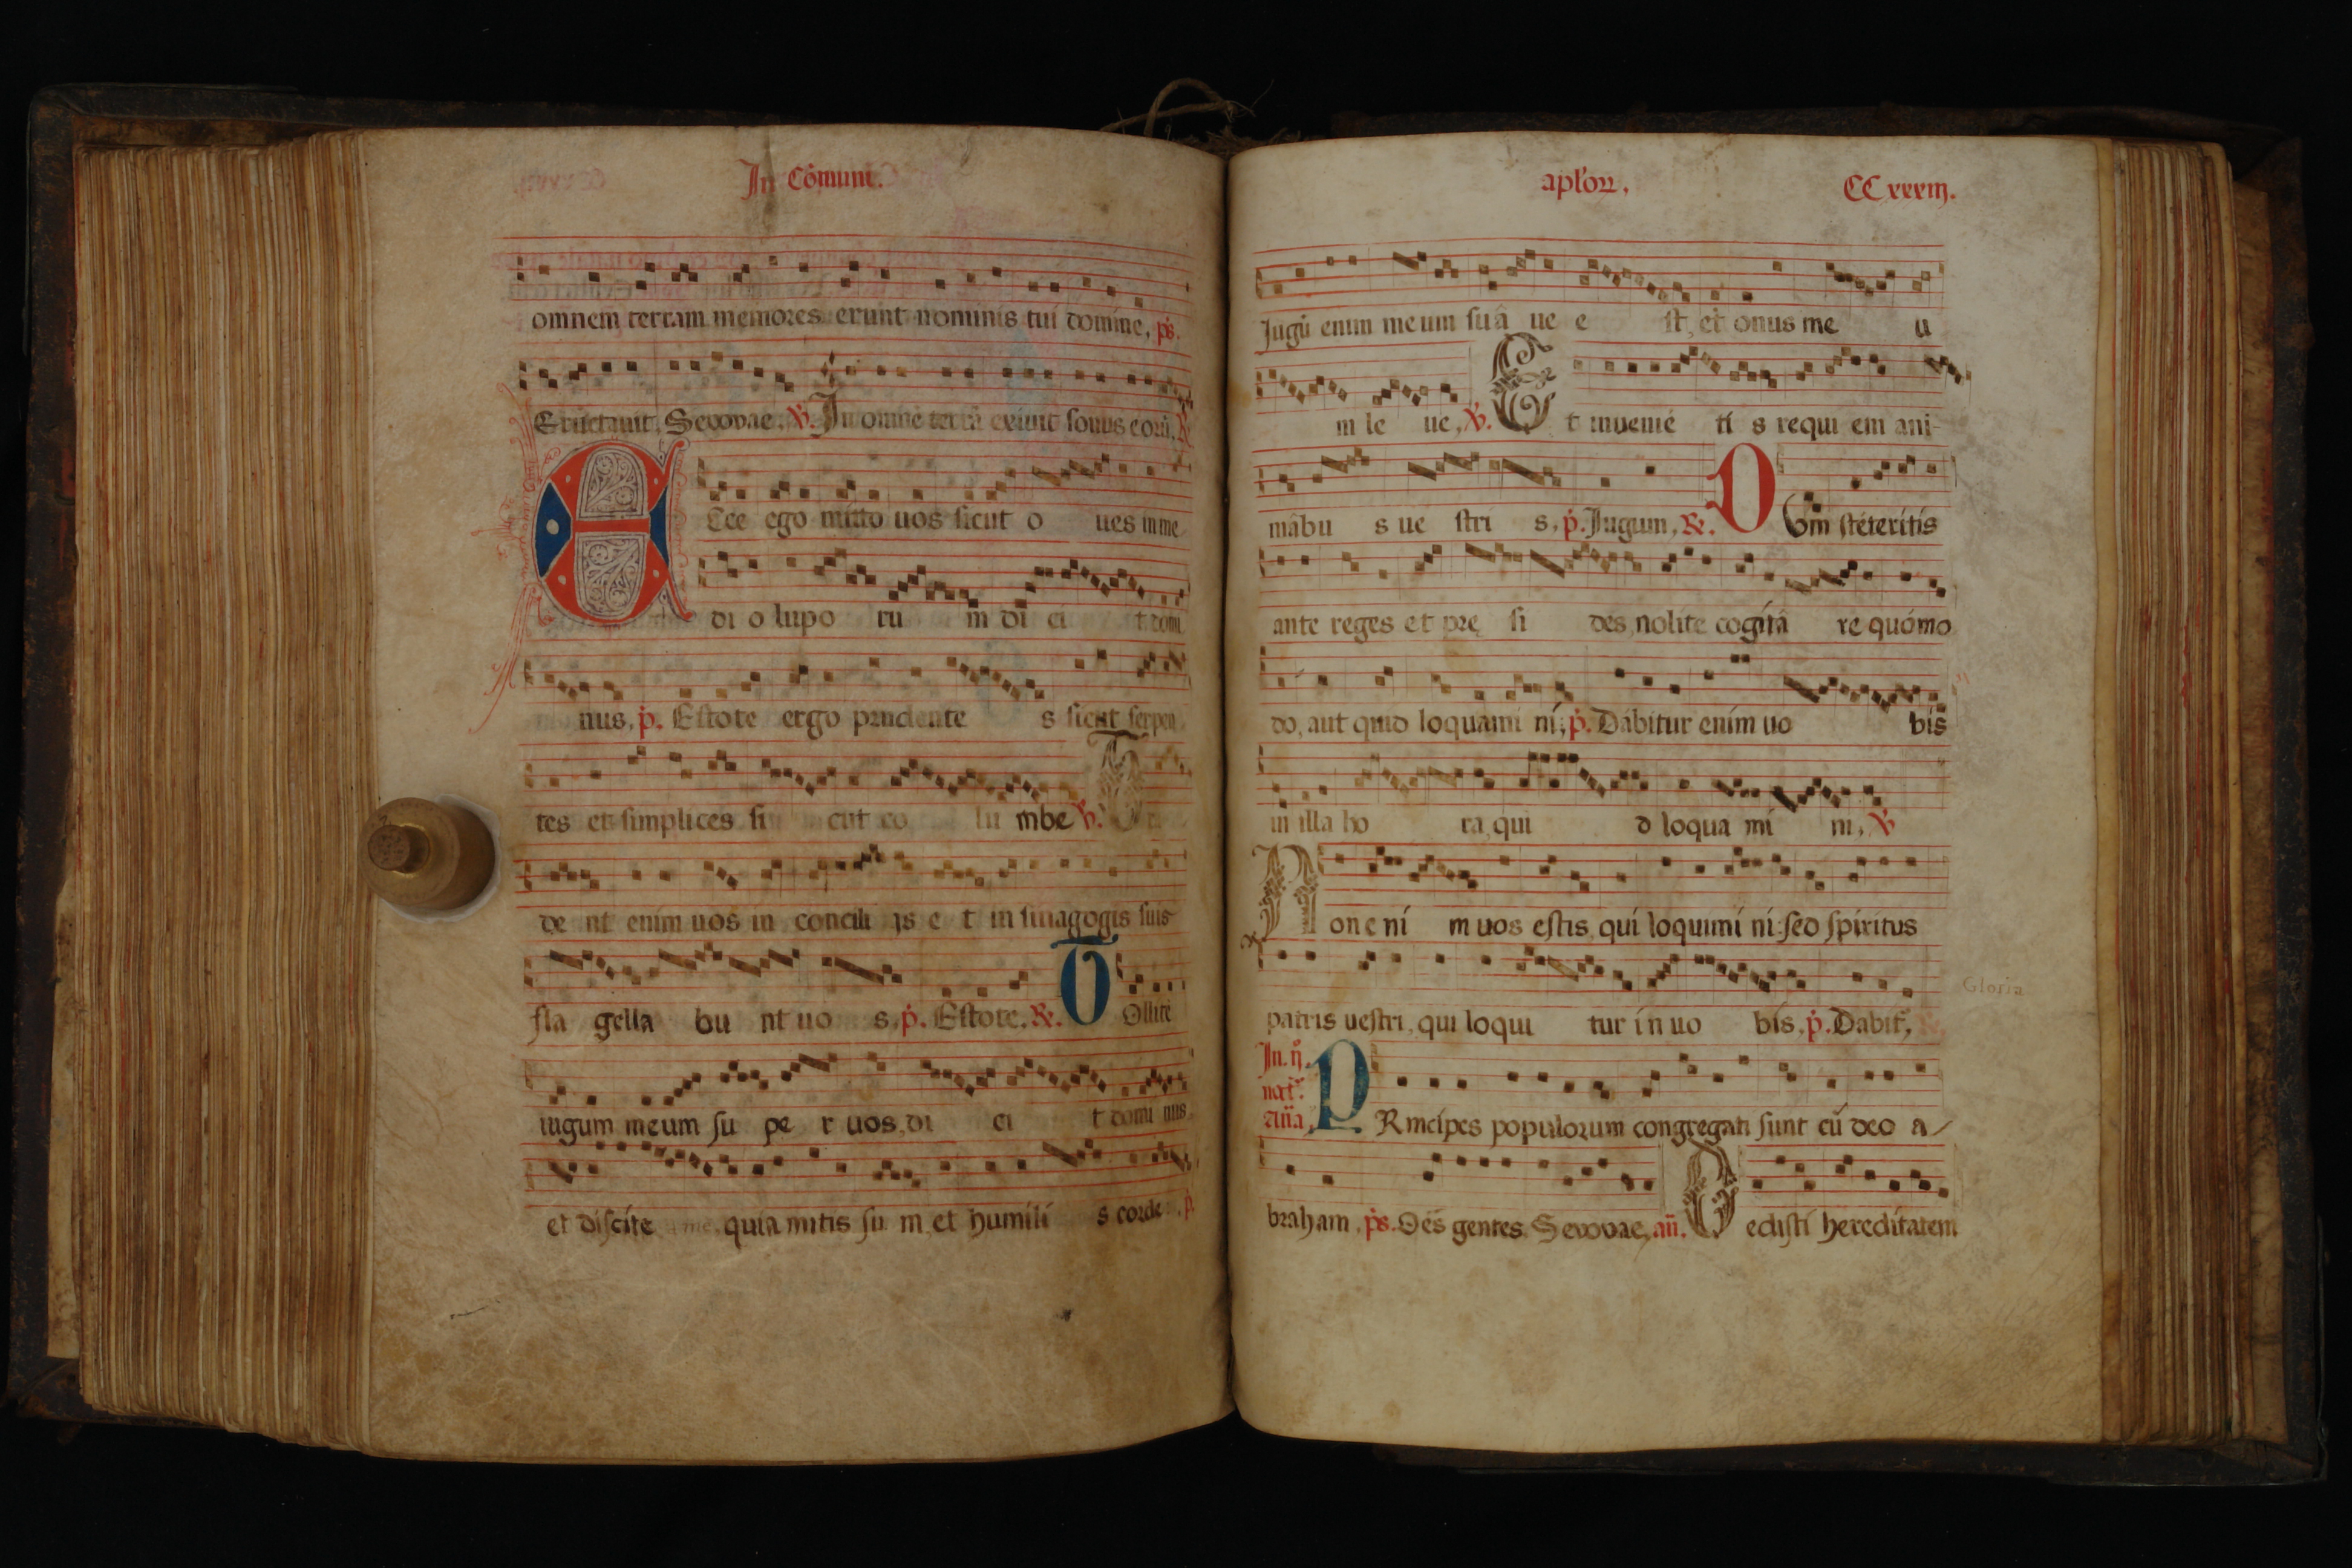 In Cōmuni.
omnem terram memores erunt nominis tui domine, ps.
Eructauit, Seuouae. V. In omnē terrā exiuit sonus eorū, R
Ecce ego mitto uos sicut o ues in me
di o lupo ru m di ci t domi
nus, p. Estote ergo prudente s sicut serpen
tes et simplices si cut co lu mbe V. Tra
de nt enim uos in concili is e t in sinagogis suis
fla gella bu nt uo s, p. Estote. R. Tollite
iugum meum su pe r uos, di ci t domi nus
et discite a me, quia mitis su m, et humili s corde, p.
aplōꝝ. CCxxxiij.
Jugū enim meum suá ue e st, et onus me u
m le ue, V. Et inuenié ti s requi em ani-
mábu s ue stri s, p. Jugum, R. Dum stéteritis
ante reges et pre si des, nolite cogitá re quómo
do, aut quid loquami ni; p. Dábitur enim uo bis
in illa ho ra, qui d loqua mí ni, V
Non e ní m uos estis, qui loquimi ni: sed spiritus
patris uestri, qui loqui tur in uo bis, p. Dabit̄,
Gloria
In. ij. noct. Añā PRincipes populorum congregati sunt cū deo a-
braham, ps. Oēs gentes. Seuouae, an. Dedisti hereditatem